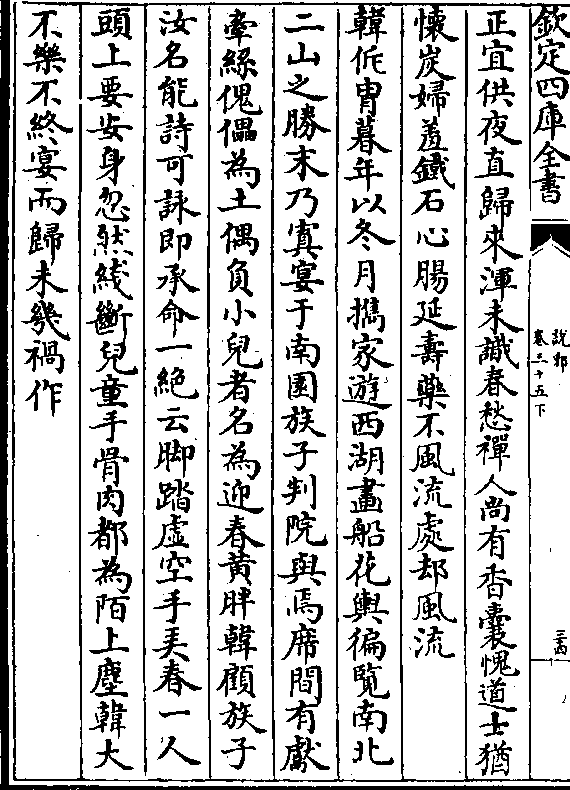 欽定四庫全書
說郛
卷三十五下
三四
正宜供夜直歸來渾未識春愁禪人尚有香囊愧道士猶
懐炭婦羞鐡石心腸延壽藥不風流處却風流
韓侂胄暮年以冬月擕家遊西湖畫船花輿徧覽南北
二山之勝末乃寘宴于南園族子判院與焉席間有獻
牽絲傀儡為土偶負小兒者名為迎春黄胖韓顧族子
汝名能詩可詠即承命一絶云脚踏虚空手弄春一人
頭上要安身忽然綫斷兒童手骨肉都為陌上塵韓大
不樂不終宴而歸未幾禍作